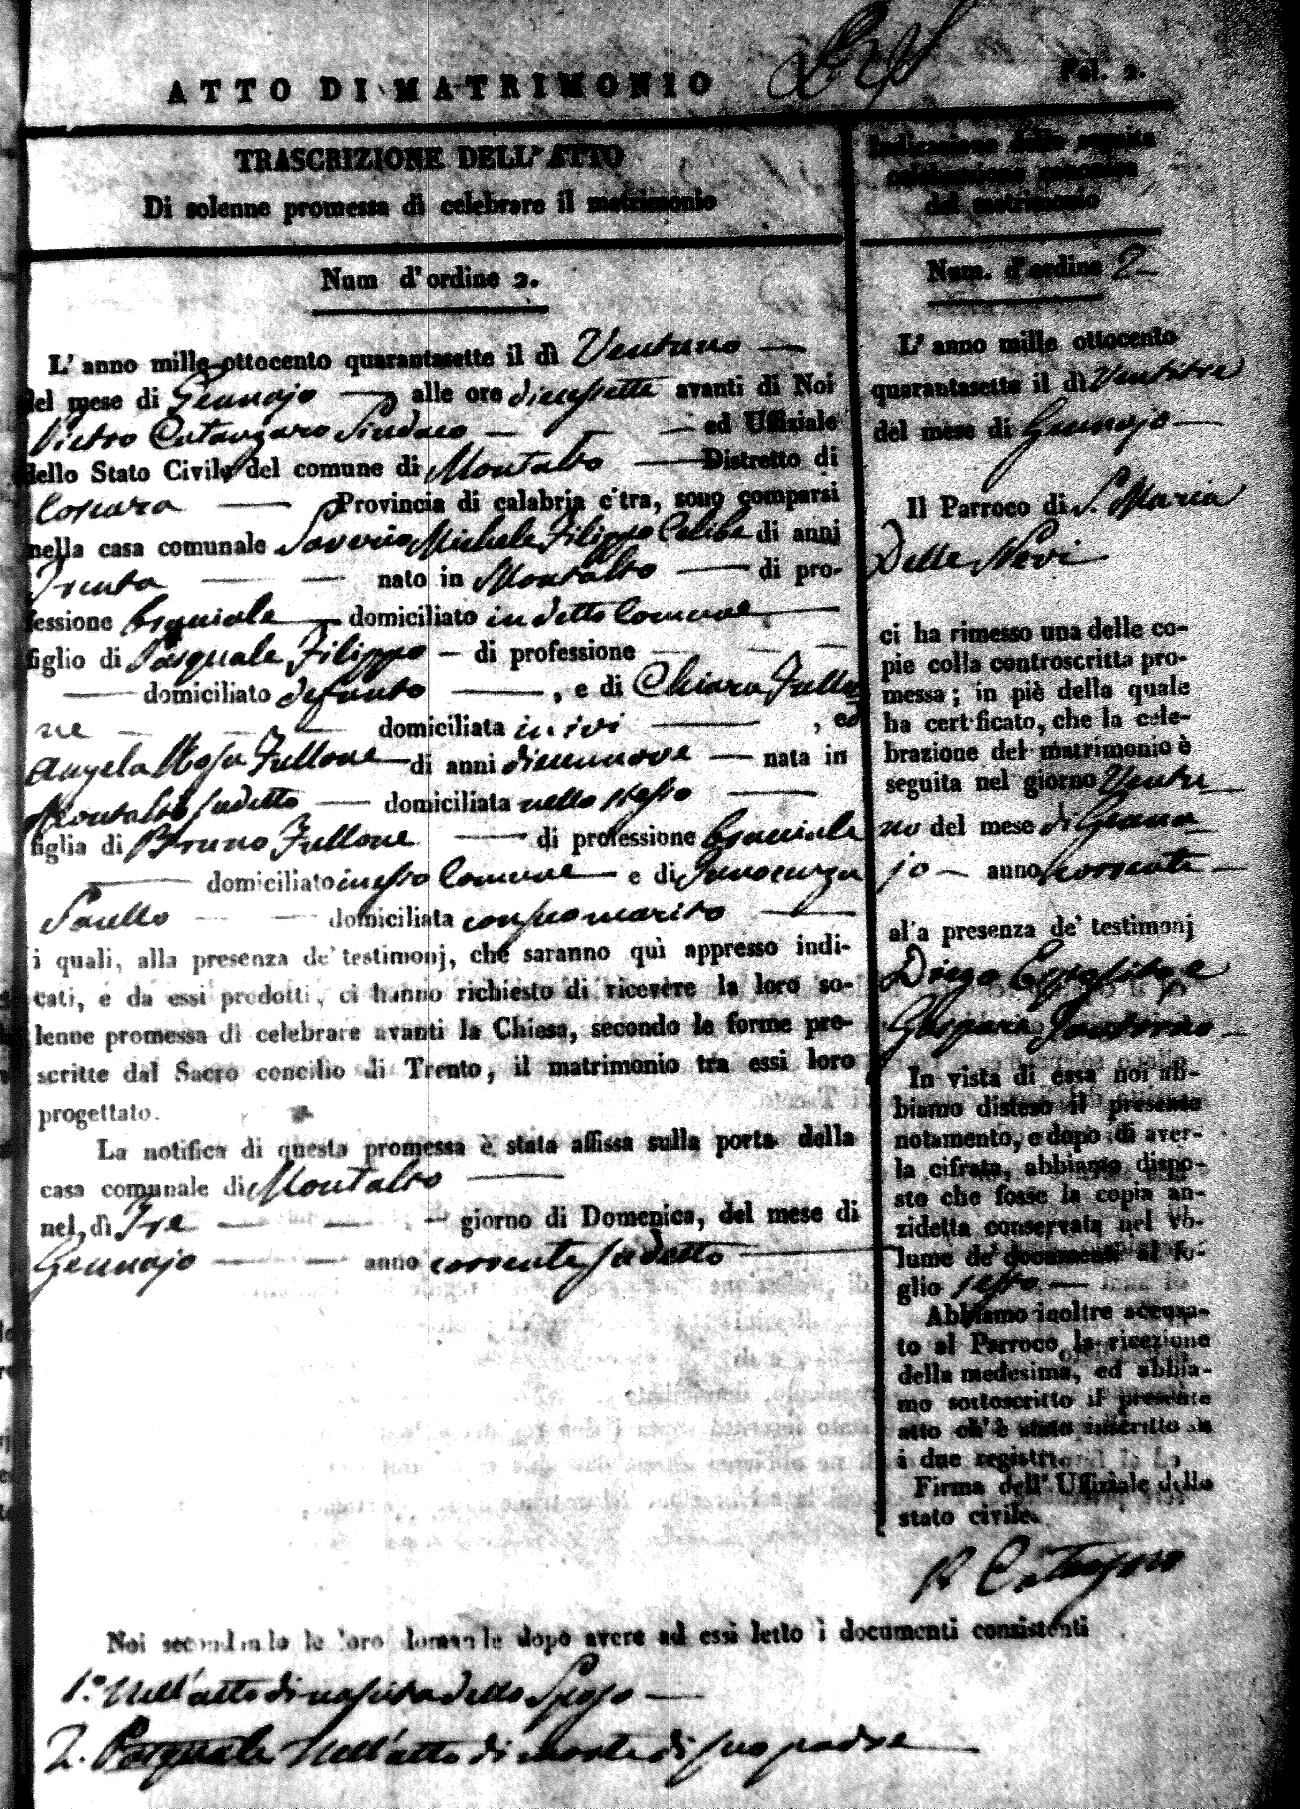 ATTO DI MATRIMONIO
Fol. 2.
TRASCRIZIONE DELL' ATTO
Di solenne promessa di celebrare il matrimonio
Num d'ordine 2.
L' anno mille ottocento quarantasette il dì Ventuno
del mese di Gennajo alle ore diecessette avanti di Noi
Pietro Catanzaro Sindaco ed Uffiziale
dello Stato Civile del comune di Montalto Distretto di
Cosenza Provincia di calabria citra, sono comparsi
nella casa comunale Saverio Michele Filippo Celibe di anni
Trenta nato in Montalto di pro-
fessione bracciale domiciliato in detto Comune
figlio di Pasquale Filippo di professione
domiciliato defunto , e di Chiara Fullo
ne domiciliata in ivi , ed
Angela Rosa Fullone di anni diecinnove nata in
Montalto sudetto domiciliata nello stesso
figlia di Bruno Fullone di professione bracciale
domiciliato in esso Comune e di Innocenza
domiciliata con suo marito
i quali, alla presenza de' testimonj, che saranno quì appresso indi-
cati, e da essi prodotti, ci hanno richiesto di ricevere la loro so-
lenne promessa di celebrare avanti la Chiesa, secondo le forme pre-
scritte dal Sacro concilio di Trento, il matrimonio tra essi loro
progettato.
La notifica di questa promessa è stata affissa sulla porta della
casa comunale di Montalto
nel dì Tre giorno di Domenica, del mese di
Gennajo anno corrente sudetto
Indicazione della seguita
celebrazione canonica
del matrimonio
Num. d'ordine 2
L' anno mille ottocento
quarantasette il dì Ventitre
del mese di Gennajo
Il Parroco di S. Maria
Delle Nevi
ci ha rimesso una delle co-
pie colla controscritta pro-
messa; in piè della quale
ha certificato, che la cele-
brazione del matrimonio è
seguita nel giorno Ventu
no del mese di Genna
jo anno corrente
alla presenza de' testimonj
Diego Esposito e
Gaspare
In vista di essa noi ab-
biamo disteso il presente
notamento, e dopo di aver-
la cifrata, abbiamo dispo-
sto che fosse la copia an-
zidetta conservata nel vo-
lume de' documenti al fo-
glio sesto.
Abbiamo inoltre accusa-
to al Parroco la ricezione
della medesima, ed abbia-
mo sottoscritto il presente
atto ch' è stato inscritto su
i due registri
Firma dell' Uffiziale dello
stato civile.
P. Catanzaro
Noi secondando le loro domande dopo avere ad essi letto i documenti consistenti
1.° Nell'atto di nascita dello Sposo
2. Pasquale Nell'atto di morte di suo padre